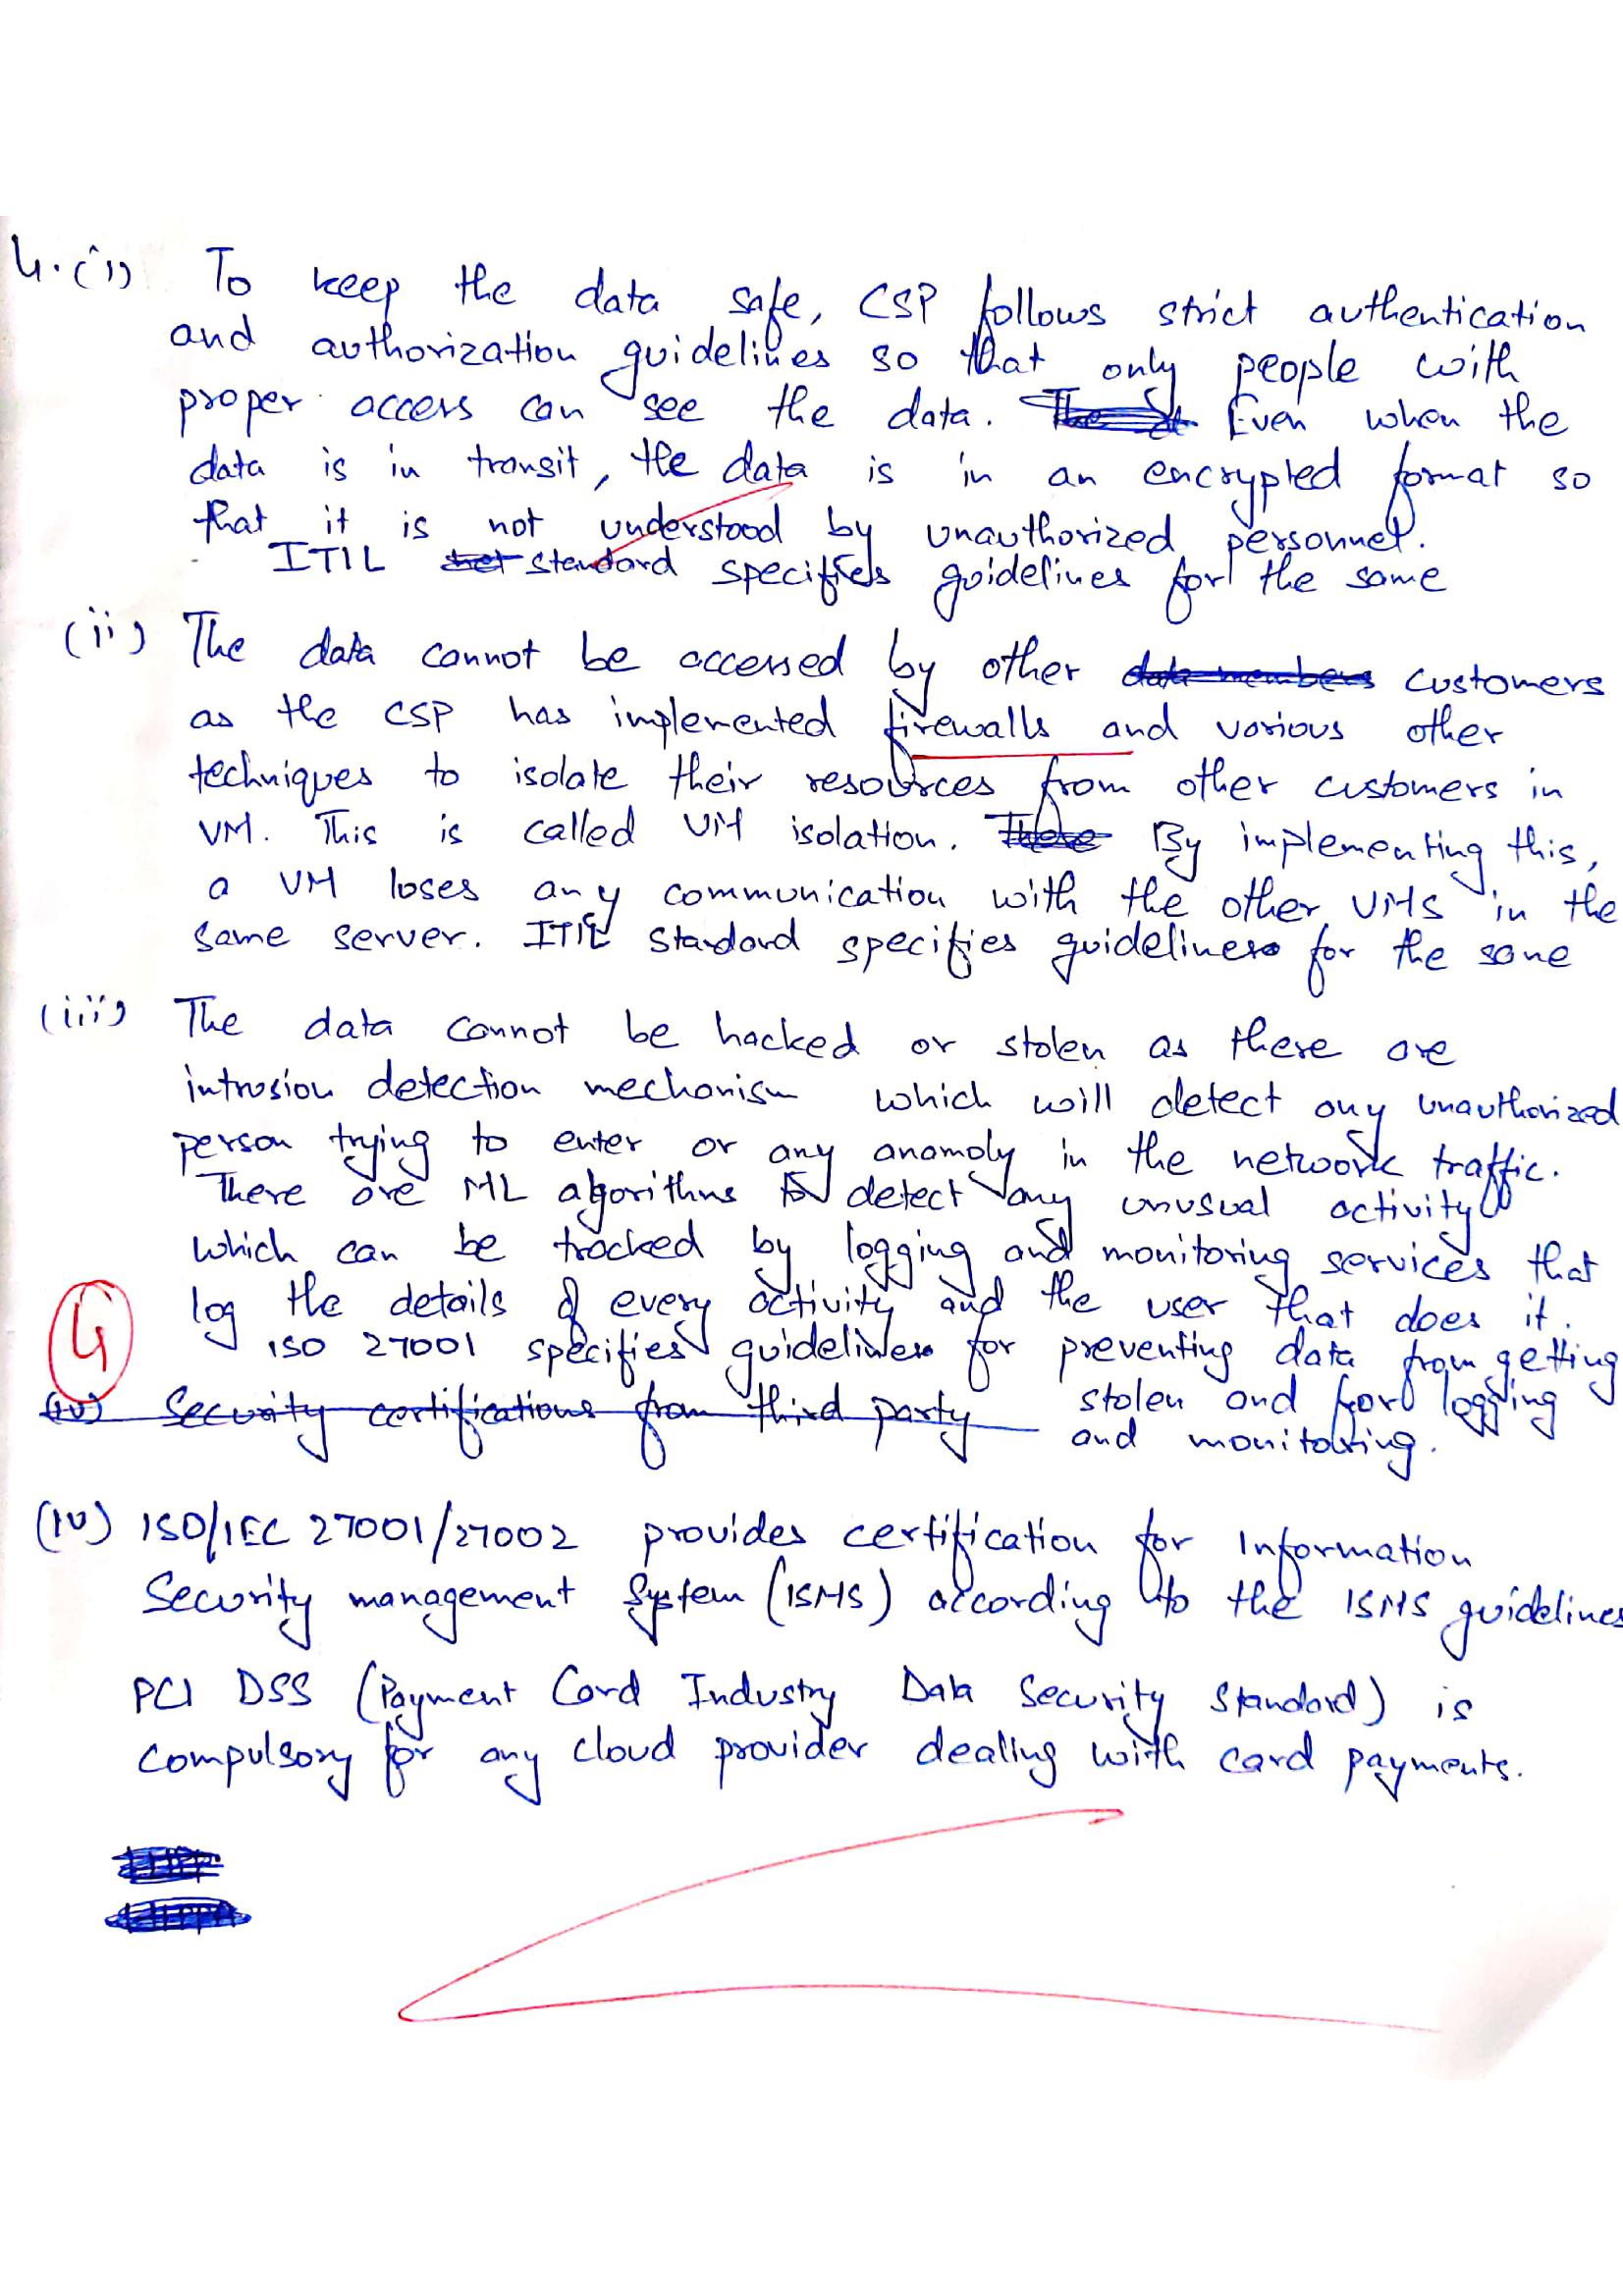 4. (i) To keep the data safe, CSP follows strict authentication
and authorization guidelines so that only people with
proper access can see the data. Even when the
data is in transit, the data is in an encrypted format so
that it is not understood by unauthorized personnel.
ITIL standard specifies guidelines for the same
(ii) The data cannot be accessed by other data members customers
as the CSP has implemented firewalls and various other
techniques to isolate their resources from other customers in
VM. This is called VM isolation. There By implementing this,
a VM loses any communication with the other VMs in the
same server. ITIL standard specifies guidelines for the same
(iii) The data cannot be hacked or stolen as there are
intrusion detection mechanism which will detect any unauthorized
person trying to enter or any anamoly in the network traffic.
There are ML algorithms to detect any unusual activity
which can be tracked by logging and monitoring services that
log the details of every activity and the user that does it.
4
ISO 27001 specifies guidelines for preventing data from getting
stolen and for logging
and monitoring.
(iv) Security certifications from third party
(iv) ISO/IEC 27001/27002 provides certification for Information
Security management System (ISMS) according to the ISMS guidelines
PCI DSS (Payment Card Industry Data Security Standard) is
compulsory for any cloud provider dealing with card payments.